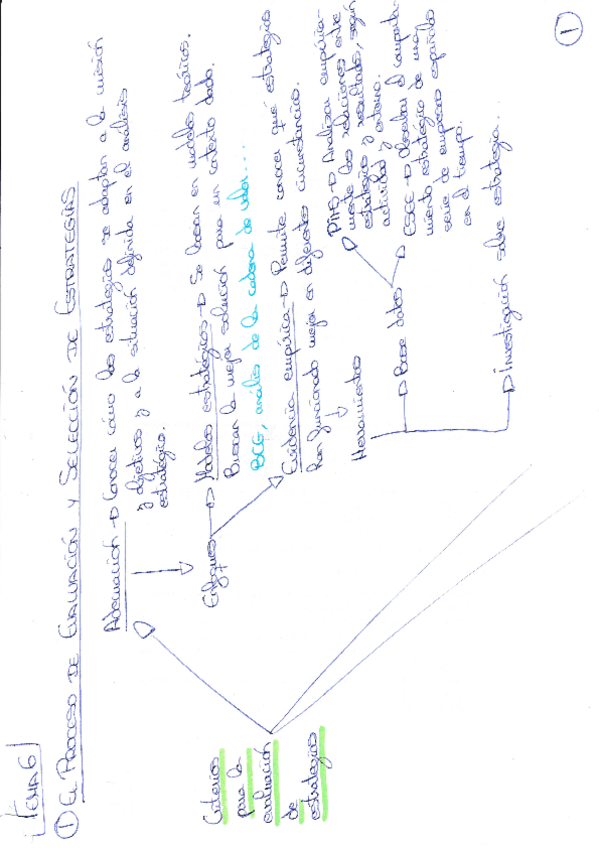 TEMA 6
① EL PROCESO DE EVALUACIÓN Y SELECCIÓN DE ESTRATEGIAS
Criterios
para la
evaluación
de
estrategias
Adecuación → Conocer cómo las estrategias se adaptan a la misión
y objetivos y a la situación definida en el análisis
estratégico.
Enfoques → Modelos estratégicos → Se basan en modelos teóricos.
Buscan la mejor solución para un contexto dado.
BCG, análisis de la cadena de valor...
Evidencia empírica → Permite conocer qué estrategias
han funcionado mejor en diferentes circunstancias.
Herramientas
→ Base datos
PIMS → Analizar empírica-
mente las relaciones entre
estrategias y resultados, según
actividad y entorno.
ESEE → Observar el comporta-
miento estratégico de una
serie de empresas españolas
en el tiempo.
→ Investigación sobre estrategia...
①